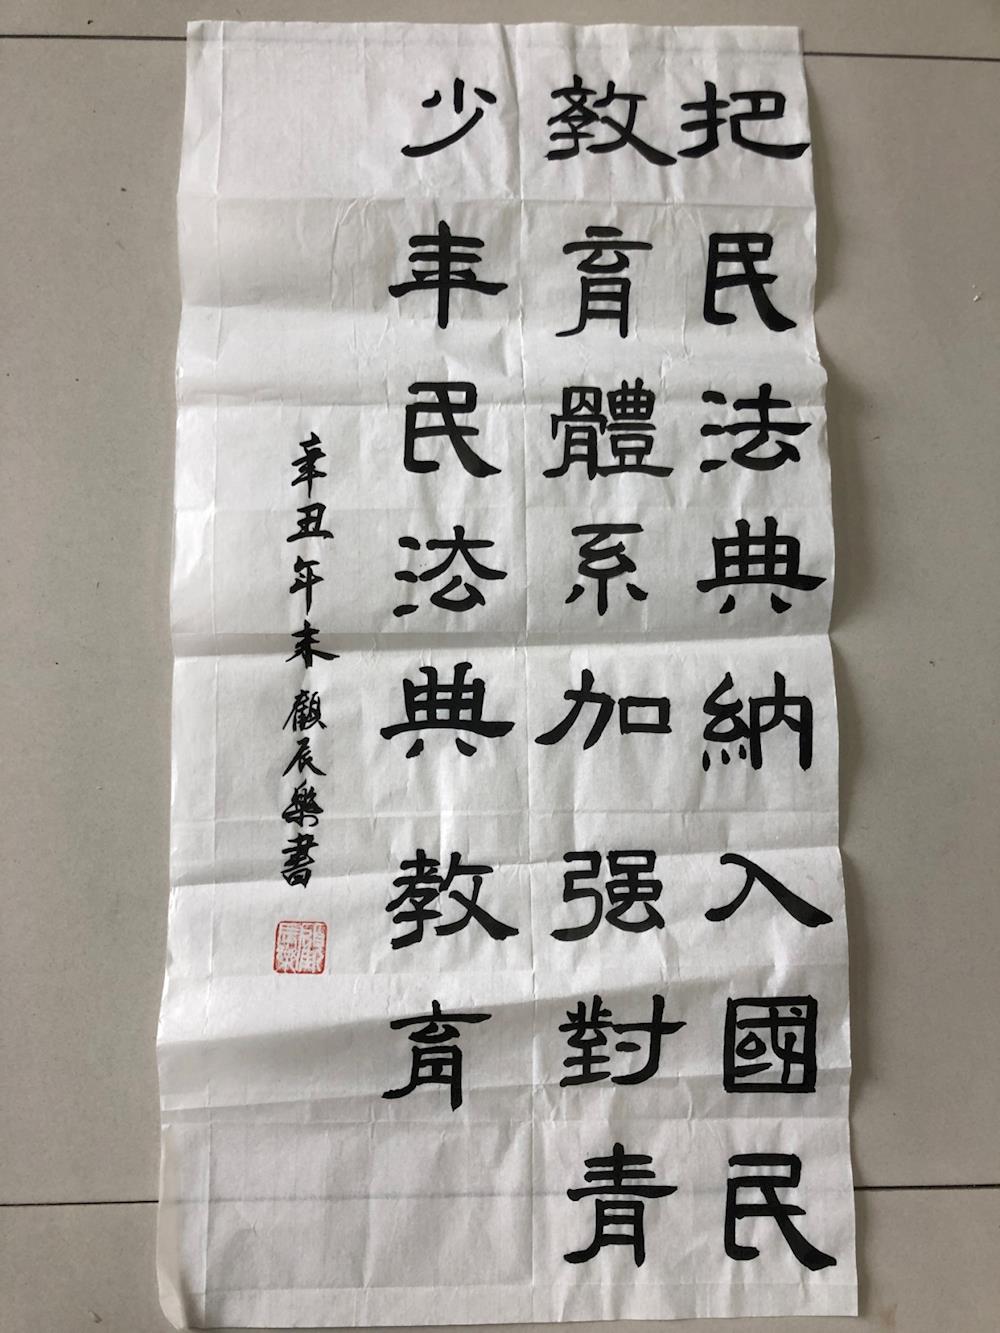 把民法典納入國民
教育體系加强對青
少年民法典教育
辛丑年末顧辰樂書